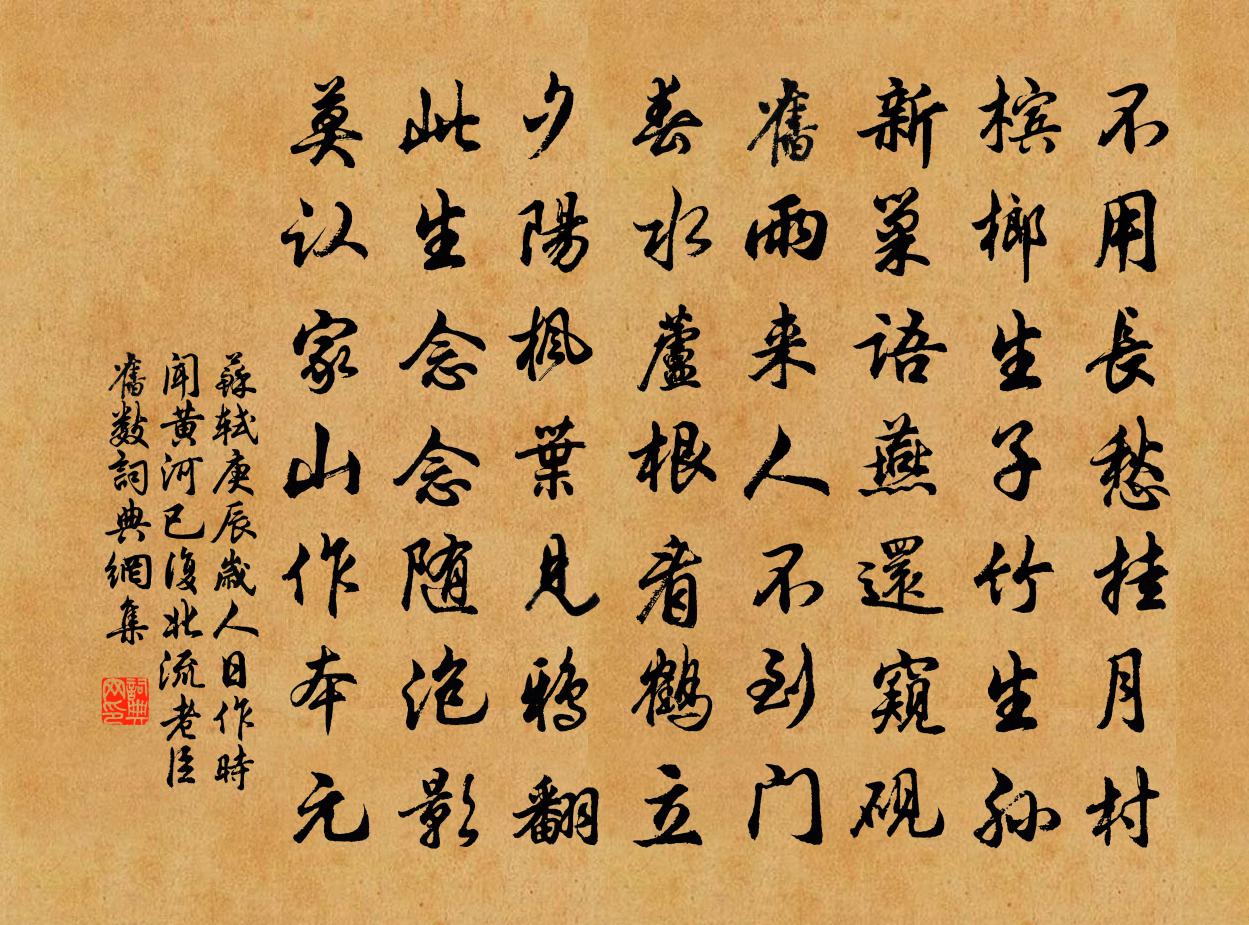 不用長愁挂月村
槟榔生子竹生孙
新巢語燕還窺硯
舊雨来人不到门
春水蘆根看鶴立
夕陽楓葉見鴉翻
此生念念随泡影
莫认家山作本元
蘇轼庚辰歲人日作時
聞黄河已復北流老臣
舊數詞典網集
詞典网印